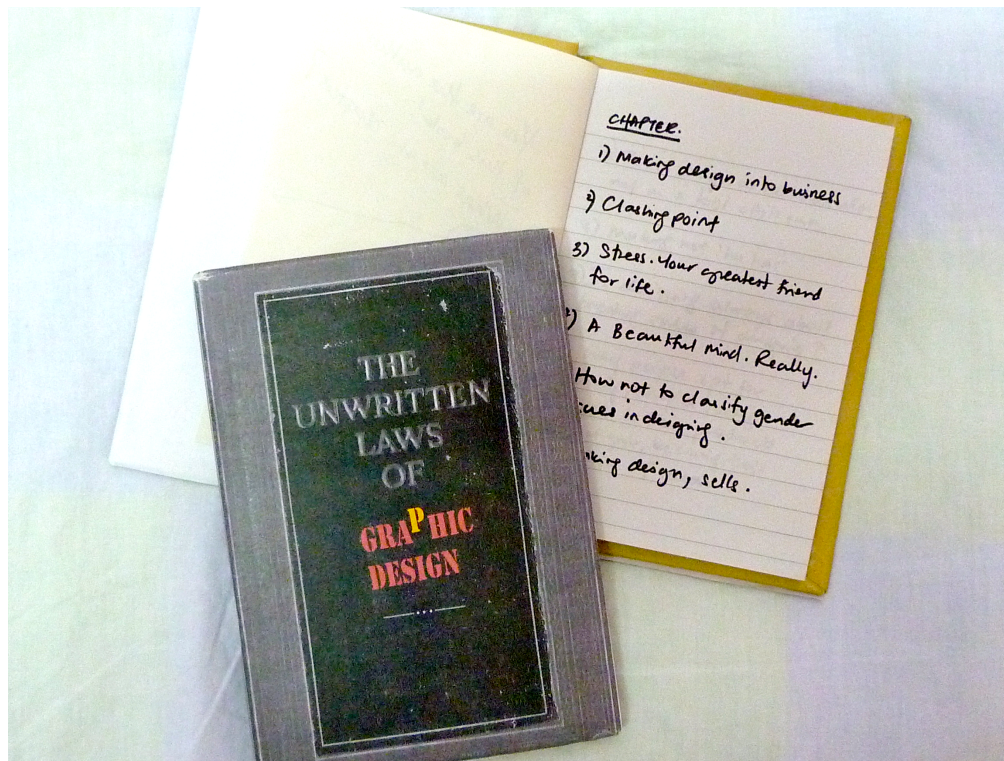 CHAPTER.
1) Making design into business
2) Clashing point
3) Stress. Your greatest friend
for life.
A Beautiful Mind. Really.
How not to classify gender
in designing.
design, sells.
THE
UNWRITTEN
LAWS
OF
GRAPHIC
DESIGN